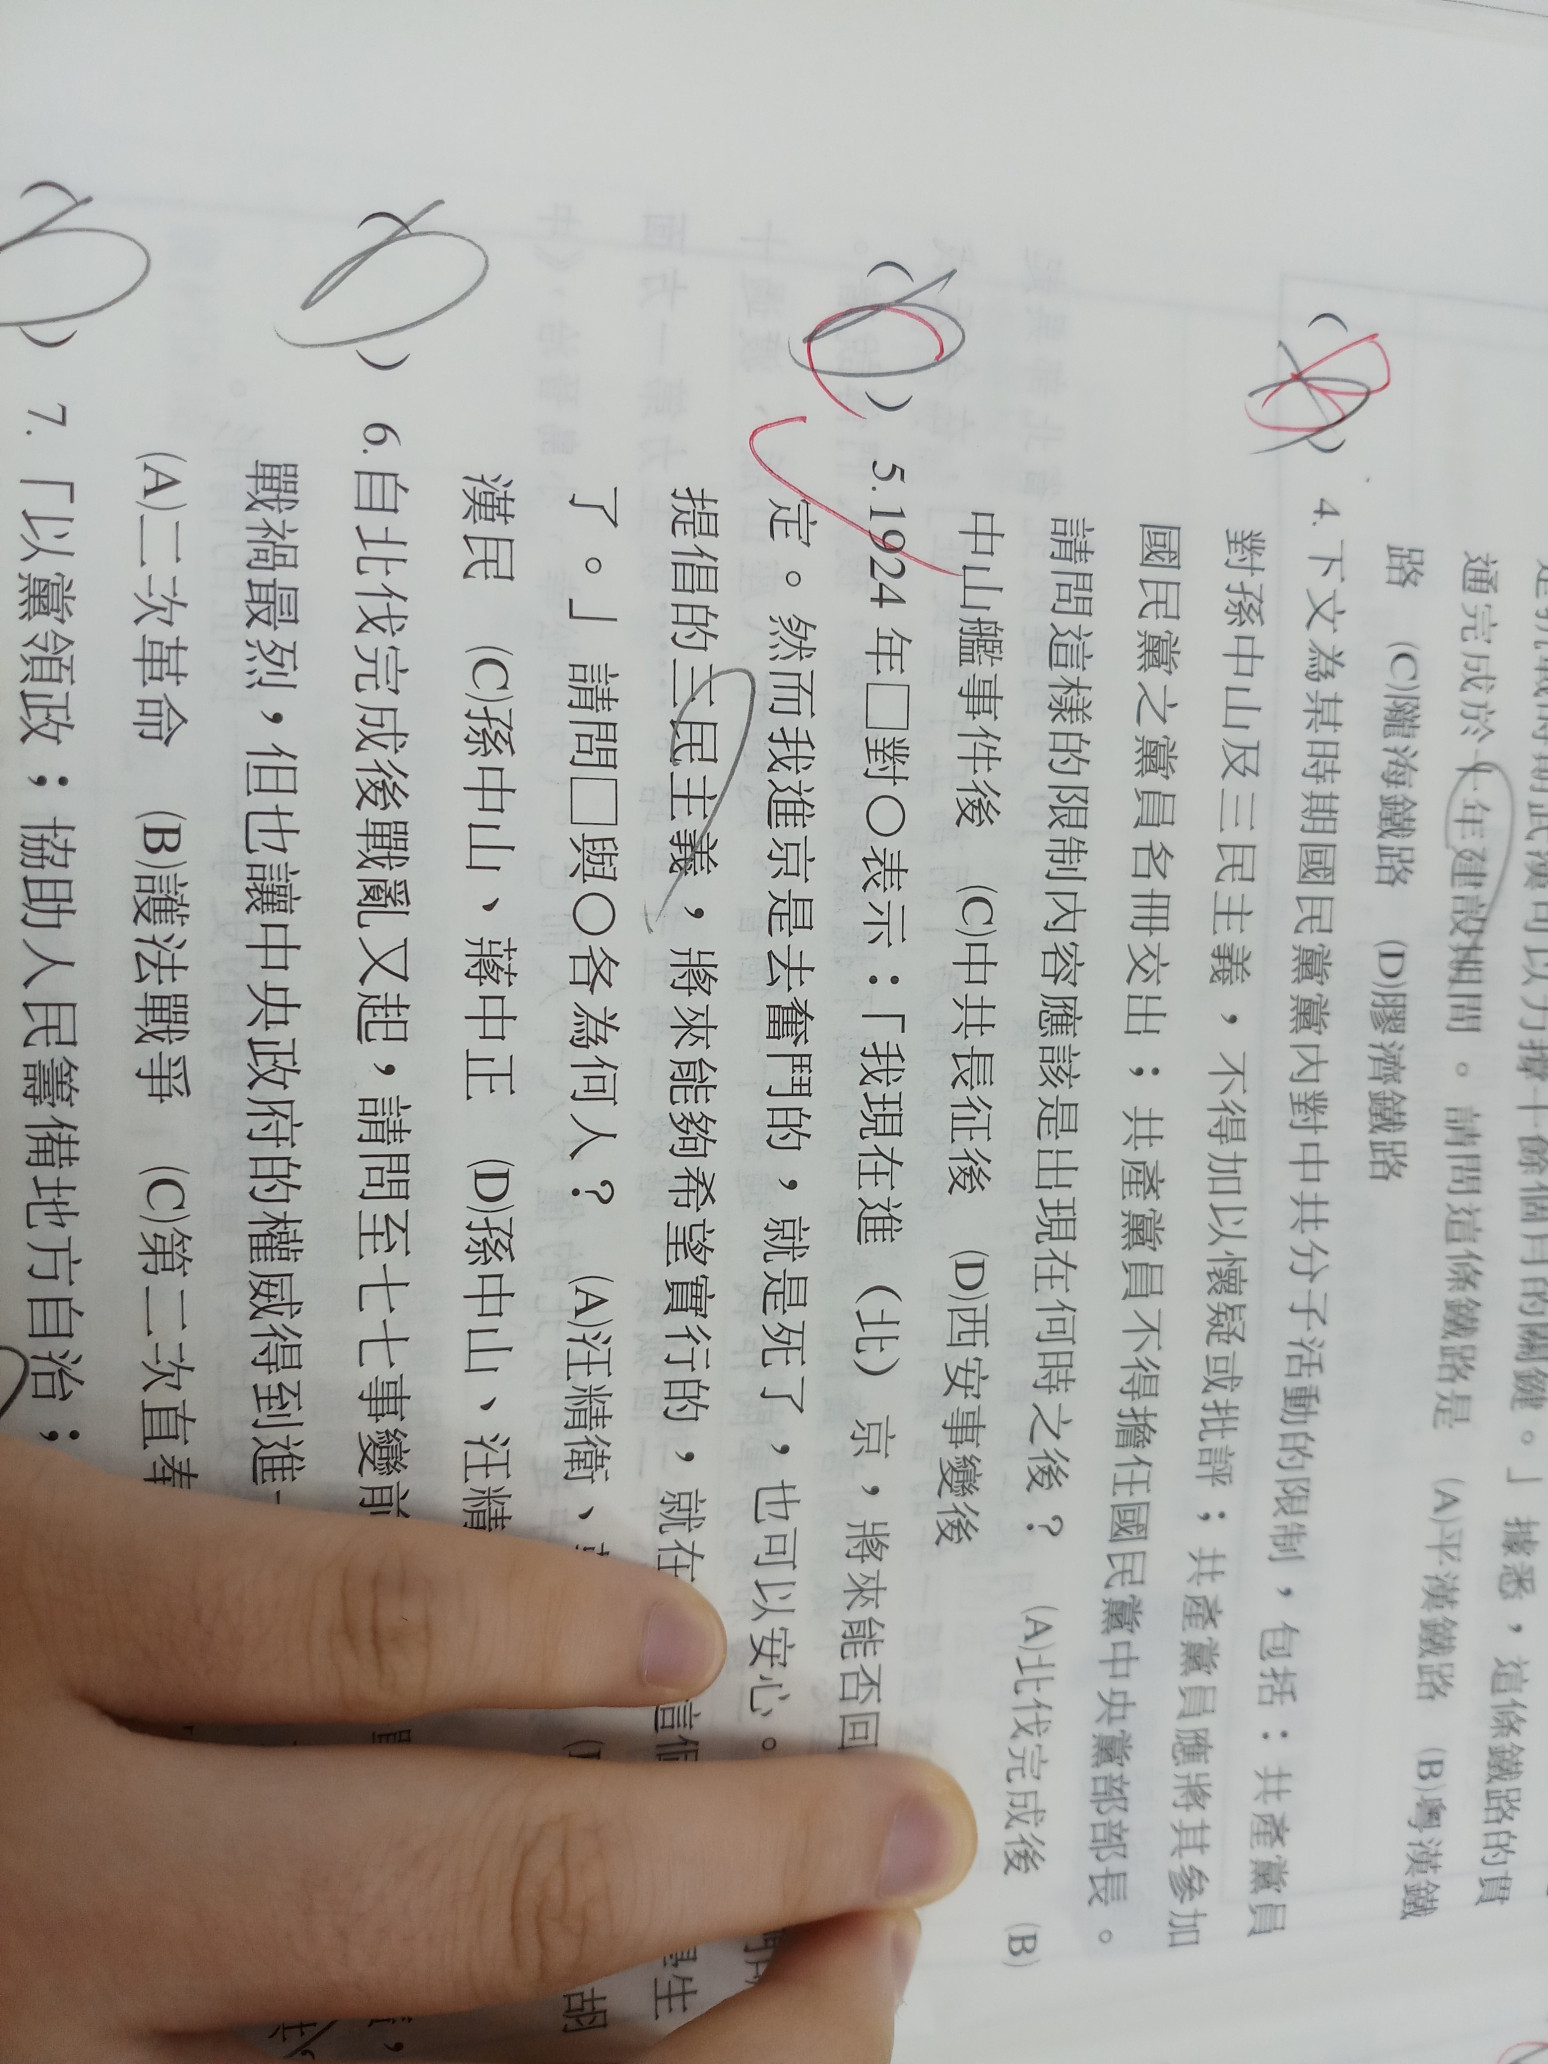 通完成於十年建設期間。請問這條鐵路是 (A)平漢鐵路 (B)粵漢鐵
路 (C)隴海鐵路 (D)膠濟鐵路
4. 下文為某時期國民黨黨內對中共分子活動的限制，包括：共產黨員
對孫中山及三民主義，不得加以懷疑或批評；共產黨員應將其參加
國民黨之黨員名冊交出；共產黨員不得擔任國民黨中央黨部部長。
請問這樣的限制內容應該是出現在何時之後？ (A)北伐完成後 (B)
中山艦事件後 (C)中共長征後 (D)西安事變後
5.1924 年□對○表示：「我現在進（北）京，將來能否回
定。然而我進京是去奮鬥的，就是死了，也可以安心。
提倡的三民主義，將來能夠希望實行的，就在這個 學生
了。」請問□與○各為何人？ (A)汪精衛、 胡
漢民 (C)孫中山、蔣中正 (D)孫中山、汪精
6.自北伐完成後戰亂又起，請問至七七事變前
戰禍最烈，但也讓中央政府的權威得到進一
(A)二次革命 (B)護法戰爭 (C)第二次直奉
7.「以黨領政；協助人民籌備地方自治；